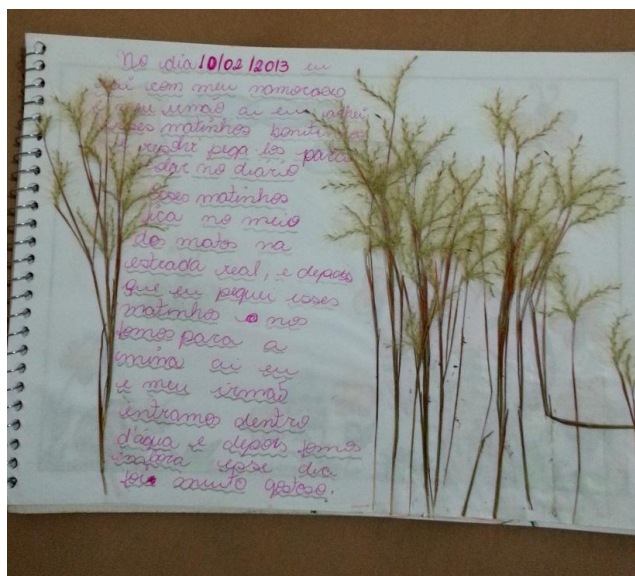 No dia 10/02/2013 eu
saí com meu namorado
e meu irmão ai eu achei
esses matinhos bonitinhos
e resolvi pega los para
colar no diario
Esses matinhos
fica no meio
dos matos na
estrada real, e depois
que eu peguei esses
matinho nos
fomos para a
mina ai eu
e meu irmão
entramos dentro
d'água e depois fomos
embora esse dia
foi muito gostoso.